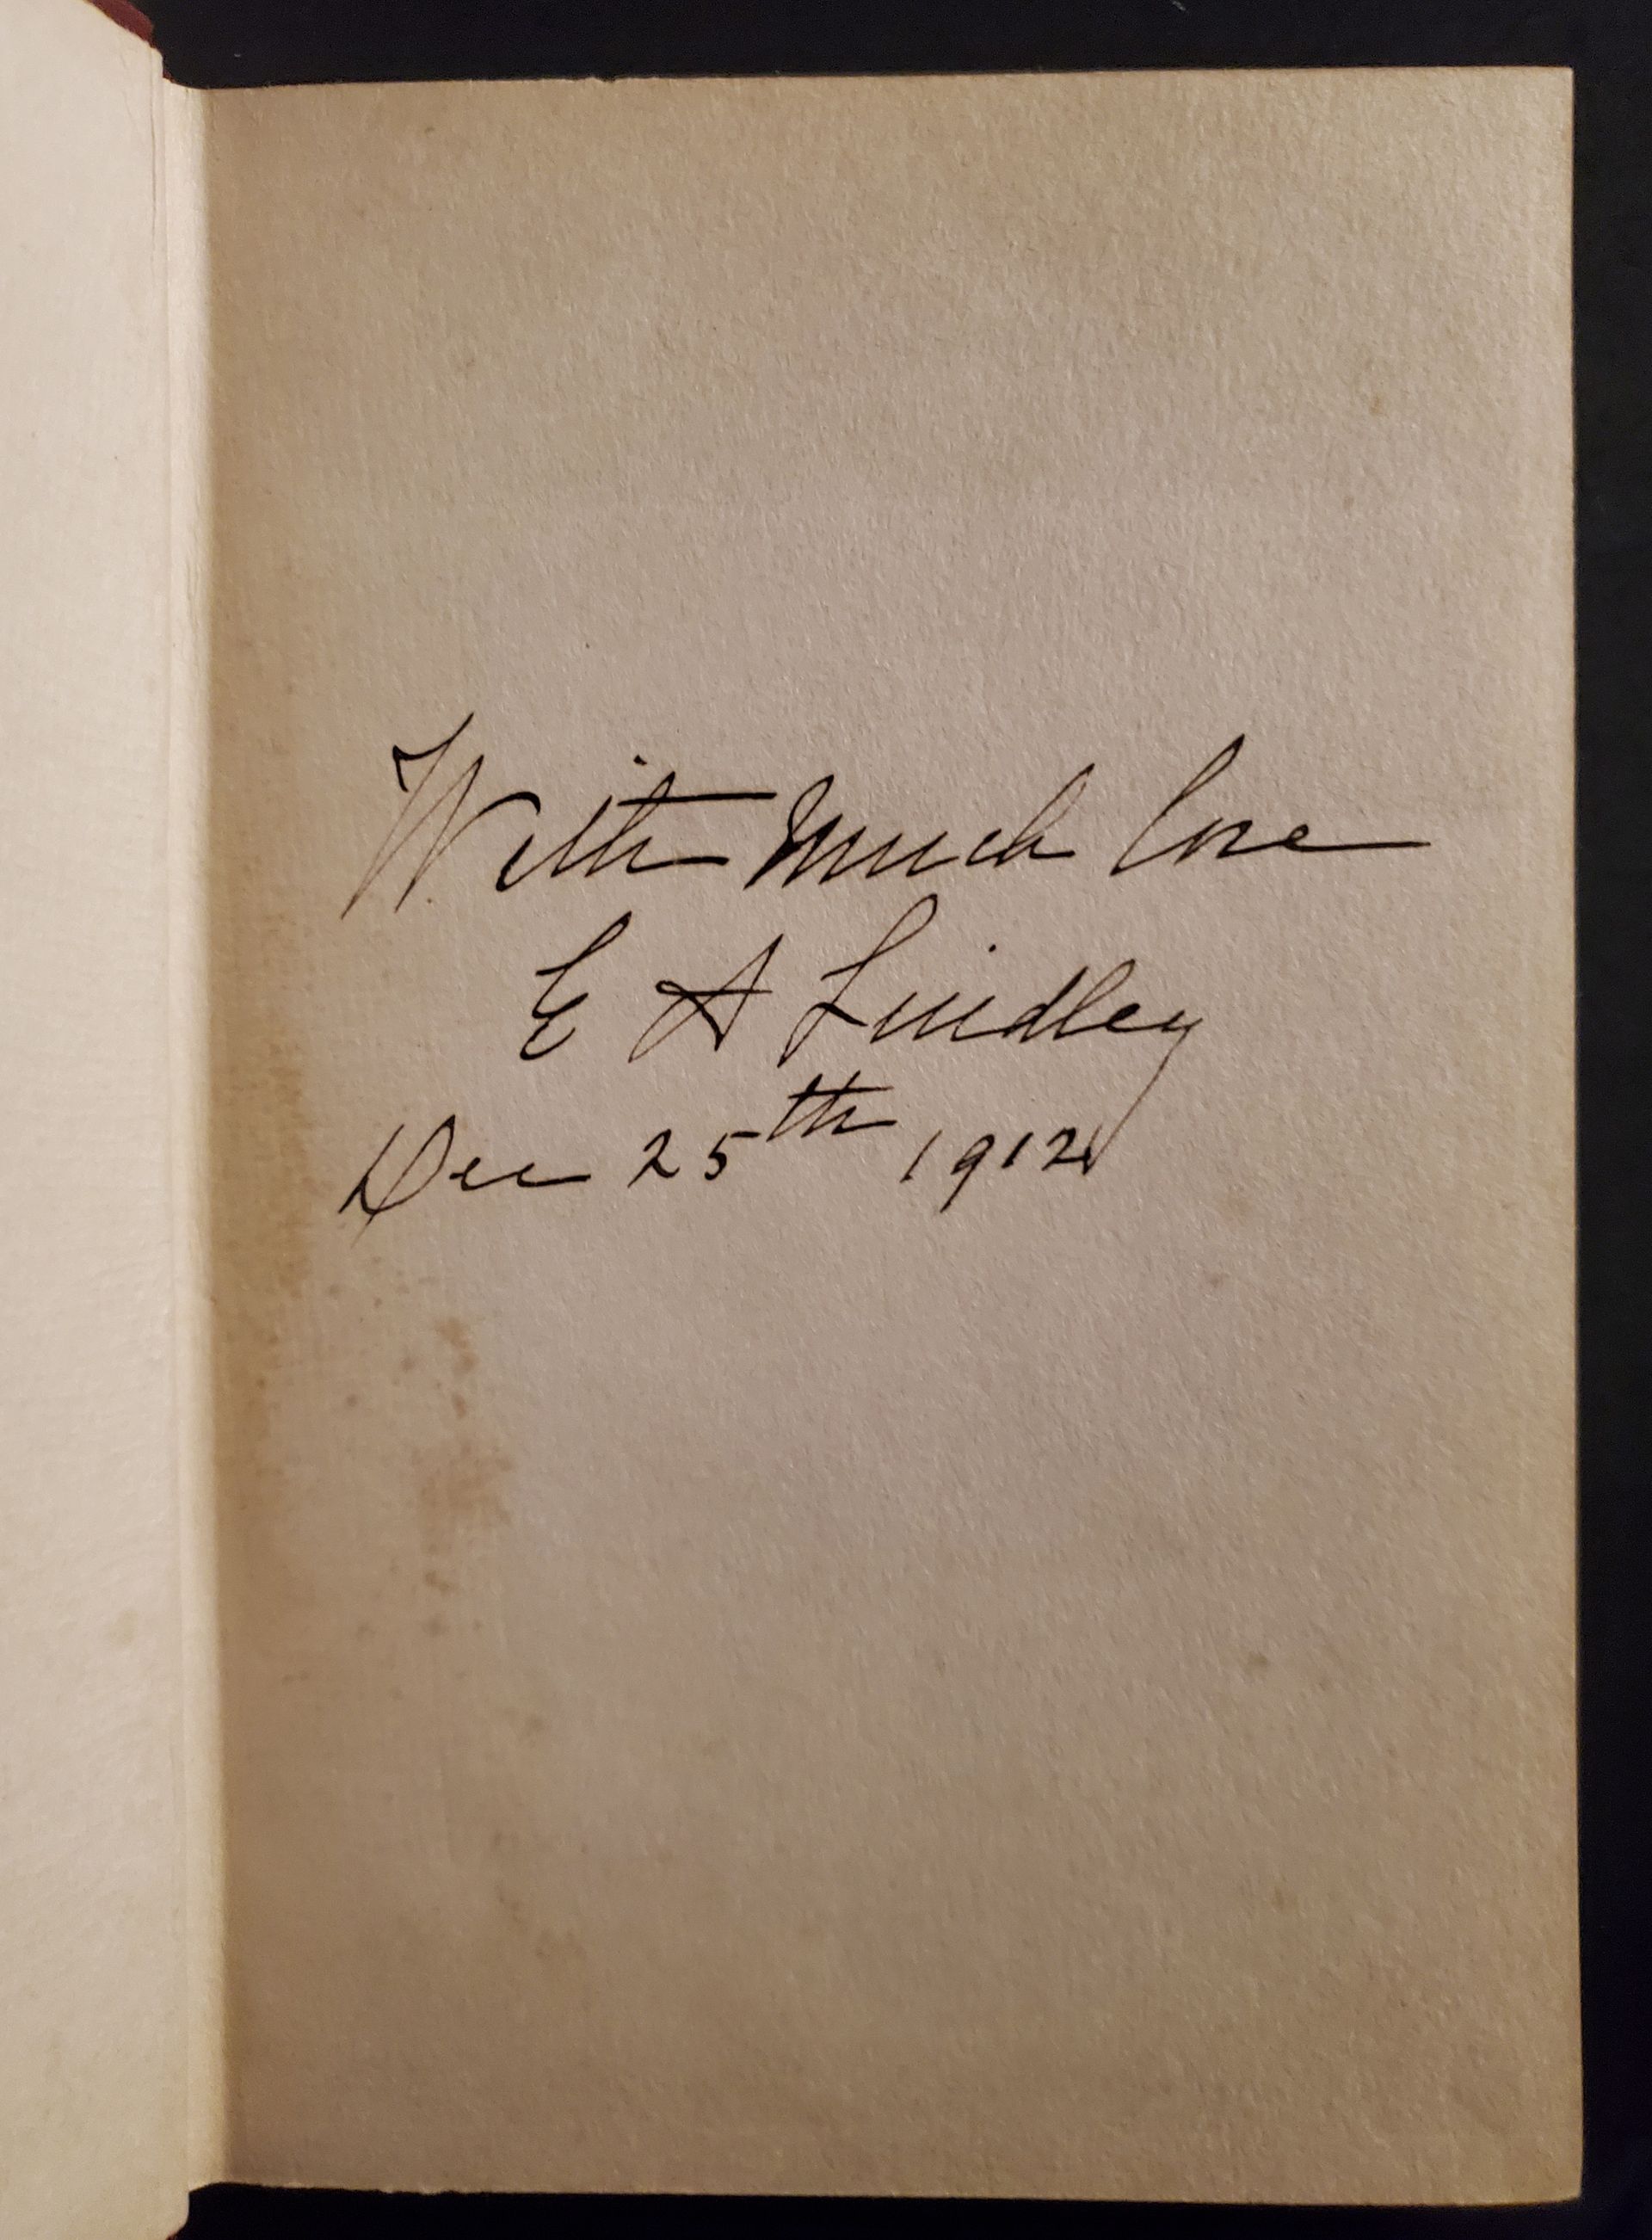 With much love
E A Lindley
Dec 25th 1912